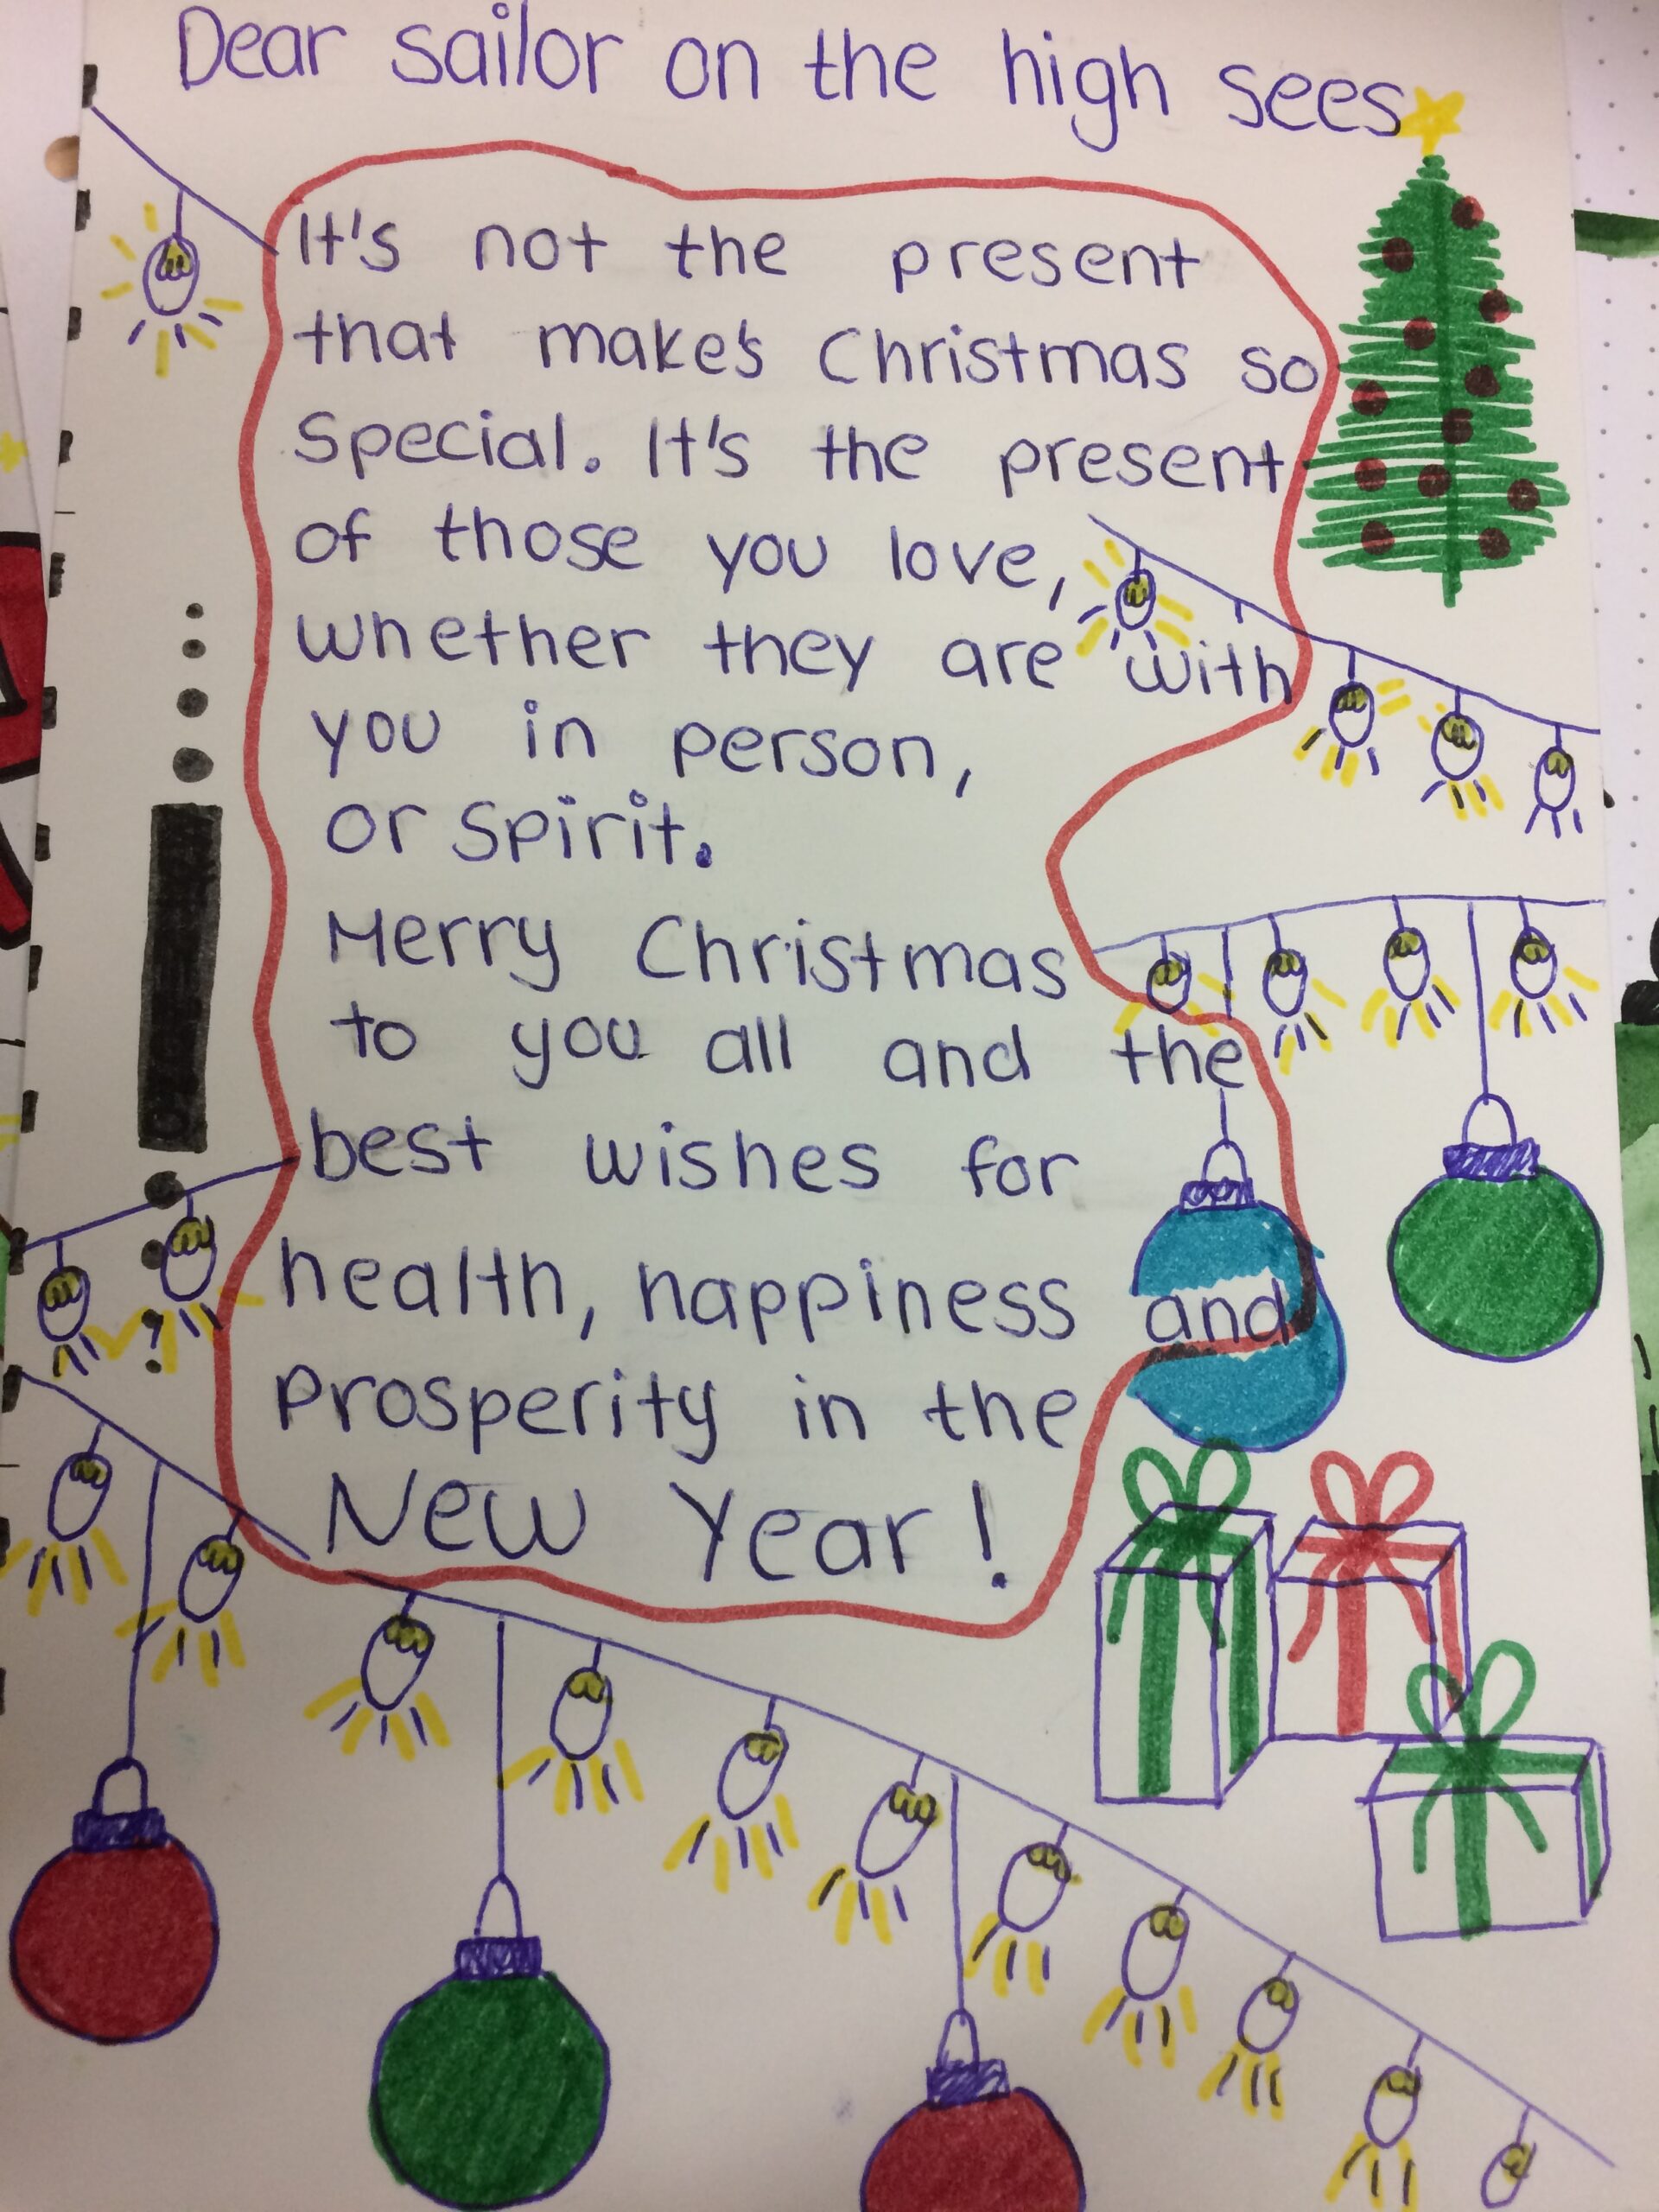 Dear sailor on the high sees
It's not the present
that make's Christmas so
special. It's the present
of those you love,
whether they are with
you in person,
or spirit.
Merry Christmas
to you all and the
best wishes for
health, happiness and
prosperity in the
New Year!